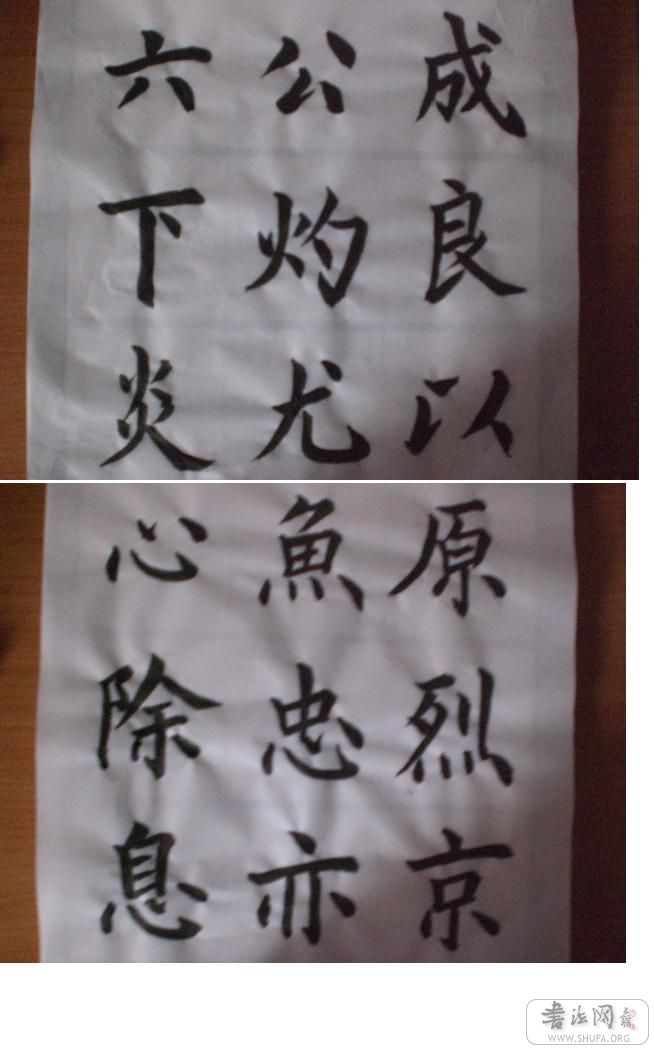 成良以
公灼尤
六下炎
原烈京
魚忠亦
心除息
書法网
WWW.SHUFA.ORG